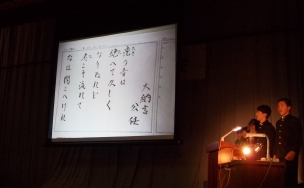 大納言
公任
滝の音は
絶へて久しく
なりぬれど
名こそ流れて
なほ聞こへけれ